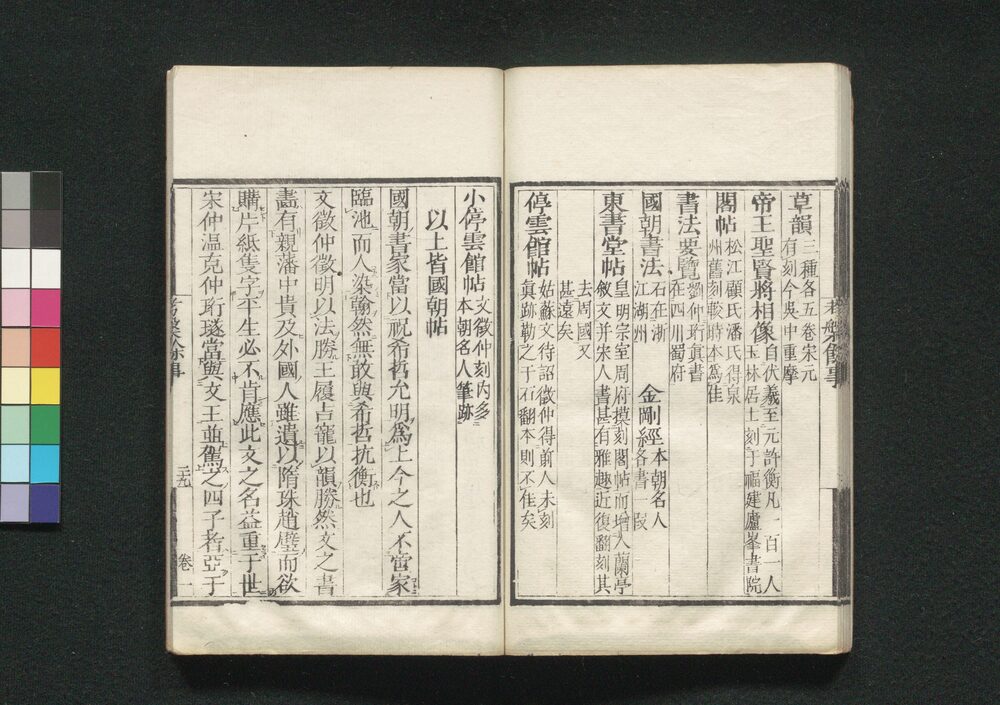 草韻 三種各五卷宋元
有刻今吳中重摩
帝王聖賢將相像 自伏羲至元許衡凡一百一人
玉林居士刻于福建廬峯書院
閣帖 松江顧氏潘氏得泉
州舊刻較時本爲佳
書法要覽 劉仲珩眞書
在四川蜀府
國朝書法 石在浙
江湖州
金剛經 本朝名人
各書一段
東書堂帖 皇明宗室周府摸刻閣帖而增入蘭亭
敘文并宋人書甚有雅趣近復翻刻其
去周國又
甚遠矣
停雲館帖 姑蘇文待詔徵仲得前人未刻
眞跡勒之于石翻本則不佳矣
小停雲館帖 文徵仲刻内多
本朝名人筆跡
以上皆國朝帖
國朝書家當以祝希哲允明爲上今之人不啻家
臨池而人染翰然無敢與希哲抗衡也
文徵仲徵明以法勝王履吉寵以韻勝然文之書
畫有親藩中貴及外國人雖遺以隋珠趙璧而欲
購片紙隻字平生必不肯應此文之名益重于世
宋仲溫克仲珩璲當與文王並駕之四子者亞于
二九
卷一